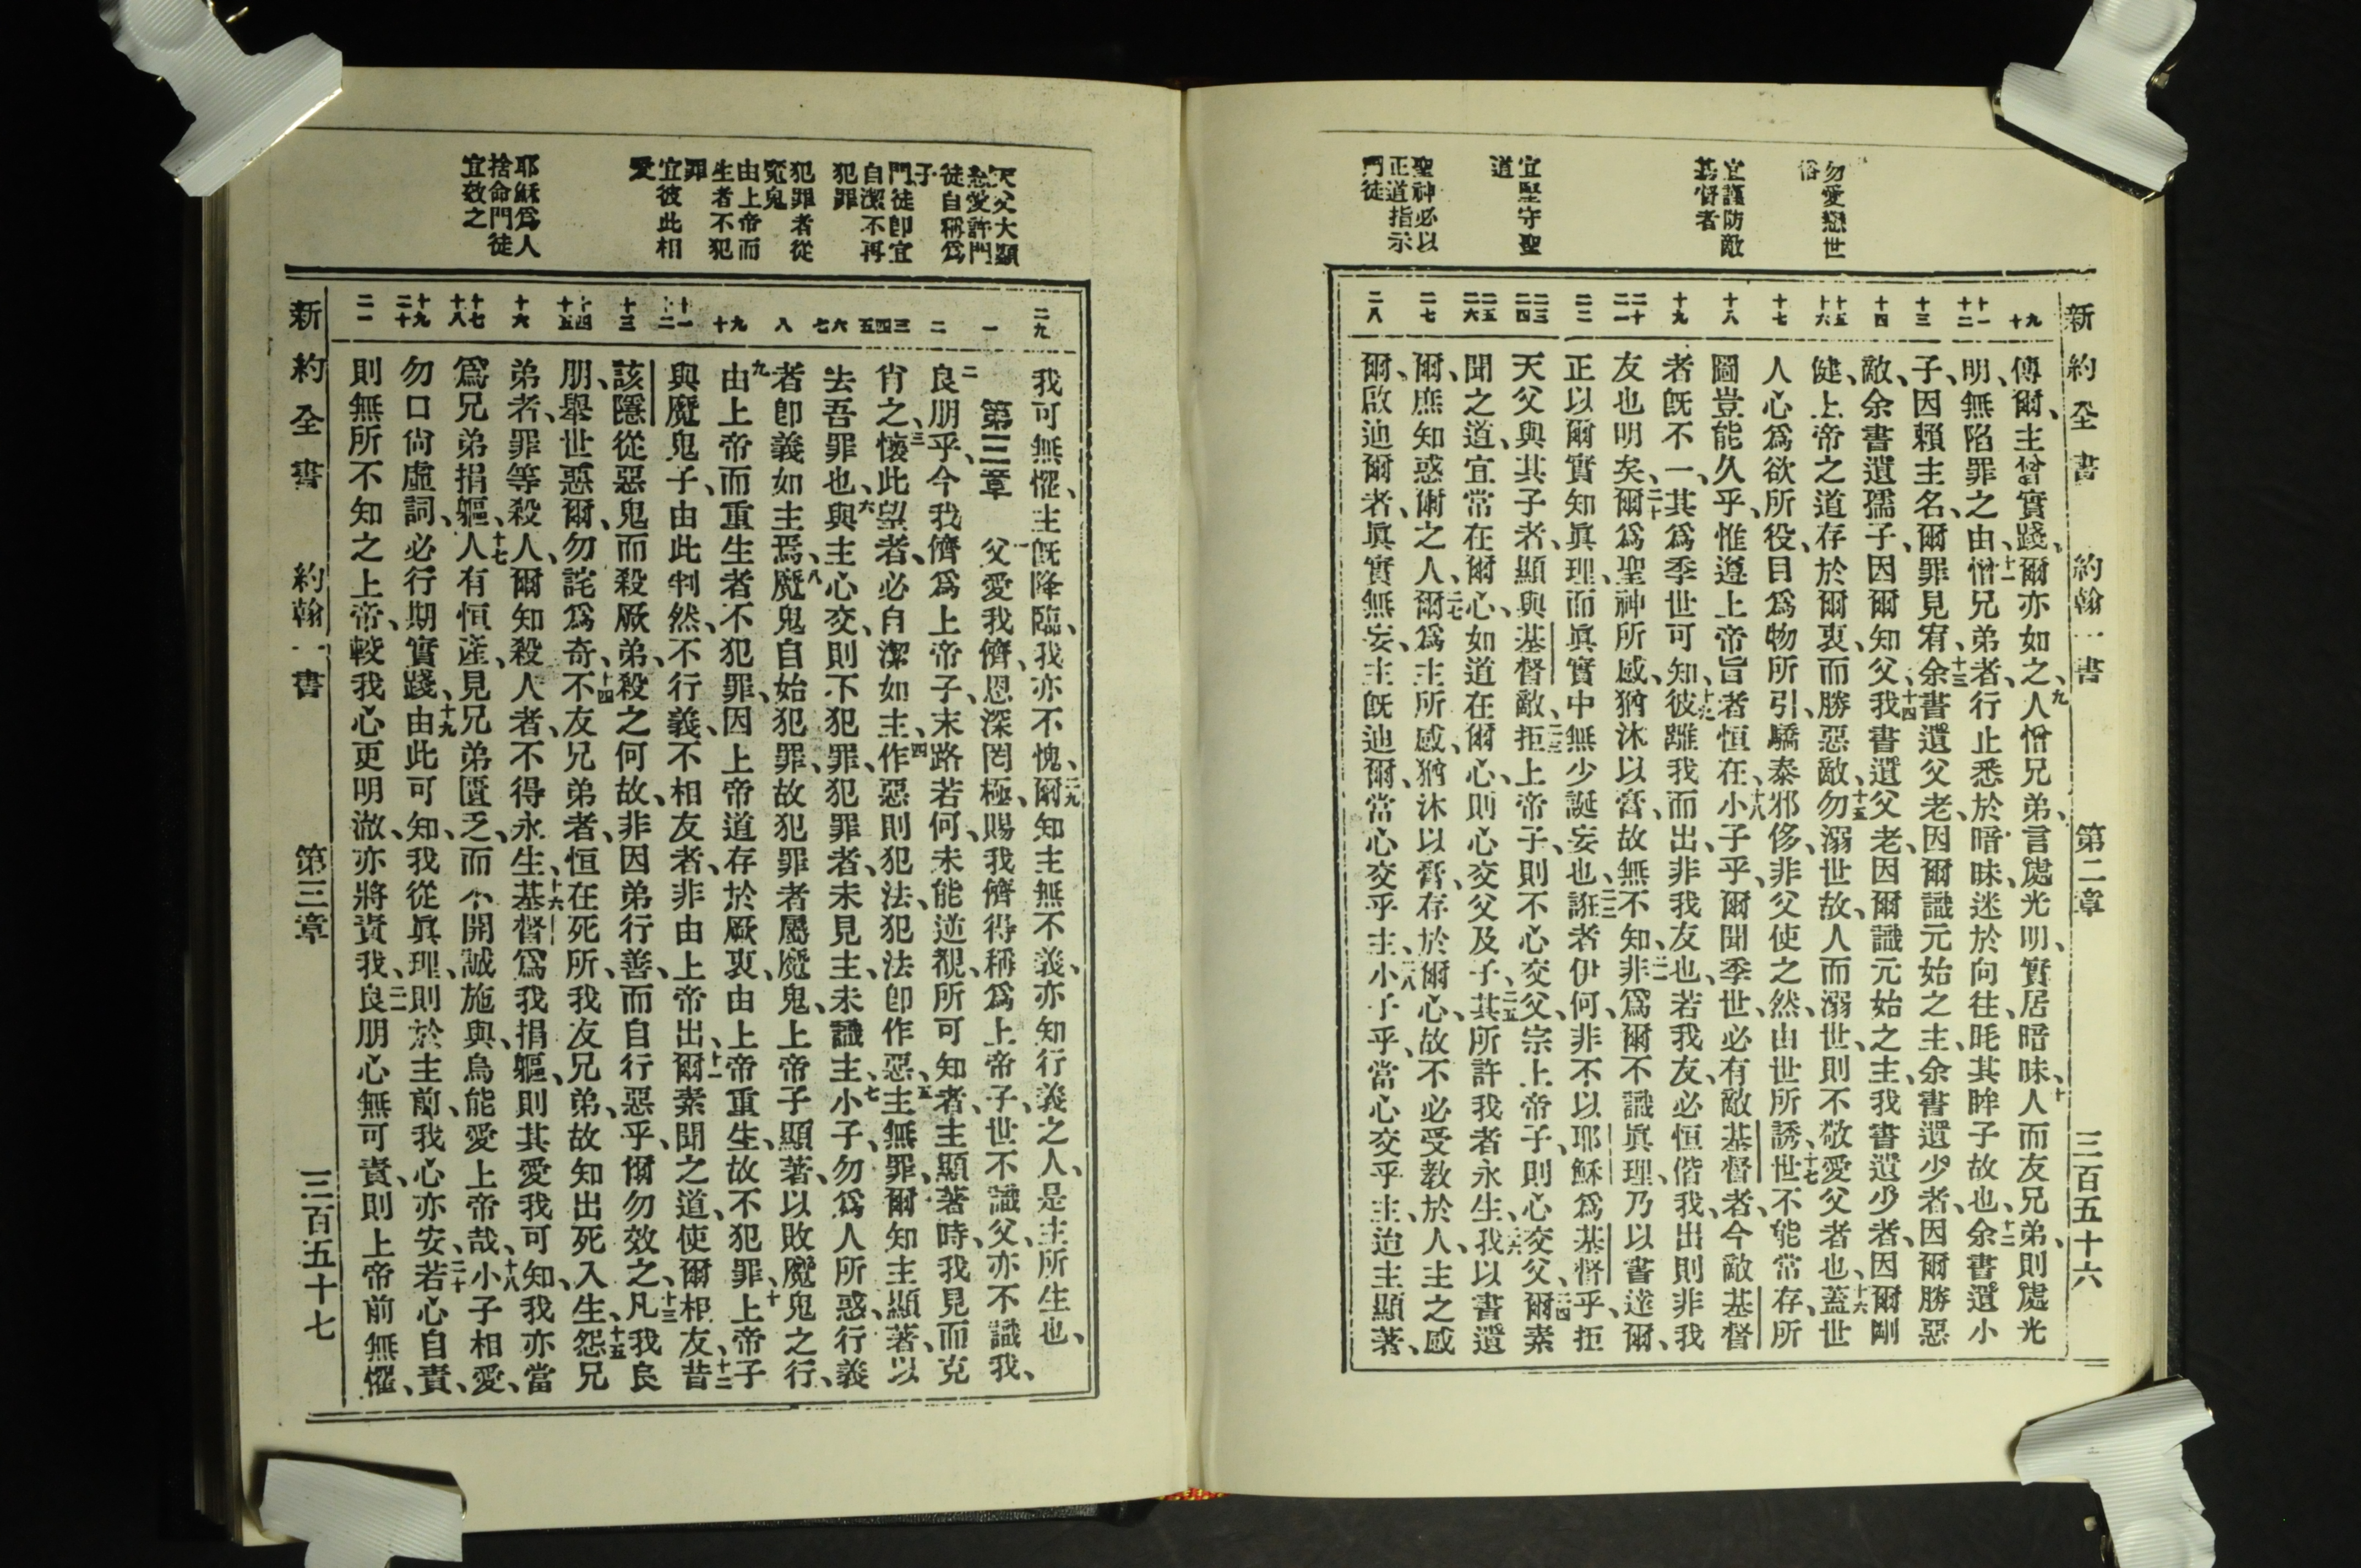 新約全書 約翰一書 第二章 三百五十六
勿愛戀世
俗
宜謹防敵
基督者
宜堅守聖
道
聖神必以
正道指示
門徒
九
十
十一
十二
十三
十四
十五
十六
十七
十八
十九
二十
二一
二二
二三
二四
二五
二六
二七
二八
傅爾、主曾實踐、爾亦如之、九人憎兄弟、言處光明、實居暗昧、十人而友兄弟、則處光
明、無陷罪之由、十一憎兄弟者、行止悉於暗昧、迷於向往、眊其眸子故也、十二余書遺小
子、因賴主名、爾罪見宥、十三余書遺父老、因爾識元始之主、余書遺少者、因爾勝惡
敵、余書遺孺子、因爾知父、十四我書遺父老、因爾識元始之主、我書遺少者、因爾剛
健、上帝之道、存於爾衷、而勝惡敵、十五勿溺世故、人而溺世、則不敬愛父者也、十六蓋世
人心爲欲所役、目爲物所引、驕泰邪侈、非父使之然、由世所誘、十七世不能常存、所
圖豈能久乎、惟遵上帝旨者恒在、十八小子乎、爾聞季世、必有敵基督者、今敵基督
者旣不一、其爲季世可知、十九彼離我而出、非我友也、若我友、必恒偕我、出則非我
友也明矣、二十爾爲聖神所感、猶沐以膏、故無不知、二一非爲爾不識眞理、乃以書達爾、
正以爾實知眞理、而眞實中無少誕妄也、二二誑者伊何、非不以耶穌爲基督乎、拒
天父與其子者、顯與基督敵、二三拒上帝子、則不心交父、宗上帝子、則心交父、二四爾素
聞之道、宜常在爾心、如道在爾心、則心交父及子、二五其所許我者永生、二六我以書遺
爾、庶知惑爾之人、二七爾爲主所感、猶沐以膏、存於爾心、故不必受教於人、主之感
爾、啟迪爾者、眞實無妄、主旣迪爾、當心交乎主、二八小子乎、當心交乎主、迨主顯著、
天父大顯
慈愛許門
徒自稱爲
子
門徒卽宜
自潔不再
犯罪
犯罪者從
魔鬼
由上帝而
生者不犯
罪
宜彼此相
愛
耶穌爲人
捨命門徒
宜效之
二九
一
二
三
四
五
六
七
八
九
十
十一
十二
十三
十四
十五
十六
十七
十八
十九
二十
二一
我可無懼、主旣降臨、我亦不愧、二九爾知主無不義、亦知行義之人、是主所生也、
第三章 一父愛我儕、恩深罔極、賜我儕得稱爲上帝子、世不識父、亦不識我、
二良朋乎、今我儕爲上帝子、末路若何、未能逆覩、所可知者、主顯著時、我見而克
肖之、三懷此望者、必自潔如主、四作惡則犯法、犯法卽作惡、五主無罪、爾知主顯著、以
去吾罪也、六與主心交、則不犯罪、犯罪者、未見主、未識主、七小子、勿爲人所惑、行義
者卽義如主焉、八魔鬼自始犯罪、故犯罪者屬魔鬼、上帝子顯著、以敗魔鬼之行、
九由上帝而重生者、不犯罪、因上帝道存於厥衷、由上帝重生、故不犯罪、十上帝子
與魔鬼子、由此判然、不行義、不相友者、非由上帝出、十一爾素聞之道、使爾相友、十二昔
該隱從惡鬼而殺厥弟、殺之何故、非因弟行善、而自行惡乎、爾勿效之、十三凡我良
朋、舉世惡爾、勿詫爲奇、十四不友兄弟者、恒在死所、我友兄弟、故知出死入生、十五怨兄
弟者、罪等殺人、爾知殺人者、不得永生、十六基督爲我捐軀、則其愛我可知、我亦當
爲兄弟捐軀、十七人有恒產、見兄弟匱乏、而不開誠施與、烏能愛上帝哉、十八小子相愛、
勿口尙虛詞、必行期實踐、十九由此可知、我從眞理、則於主前、我心亦安、二十若心自責、
則無所不知之上帝、較我心更明澈、亦將責我、二一良朋心無可責、則上帝前無懼、
新約全書 約翰一書 第三章 三百五十七